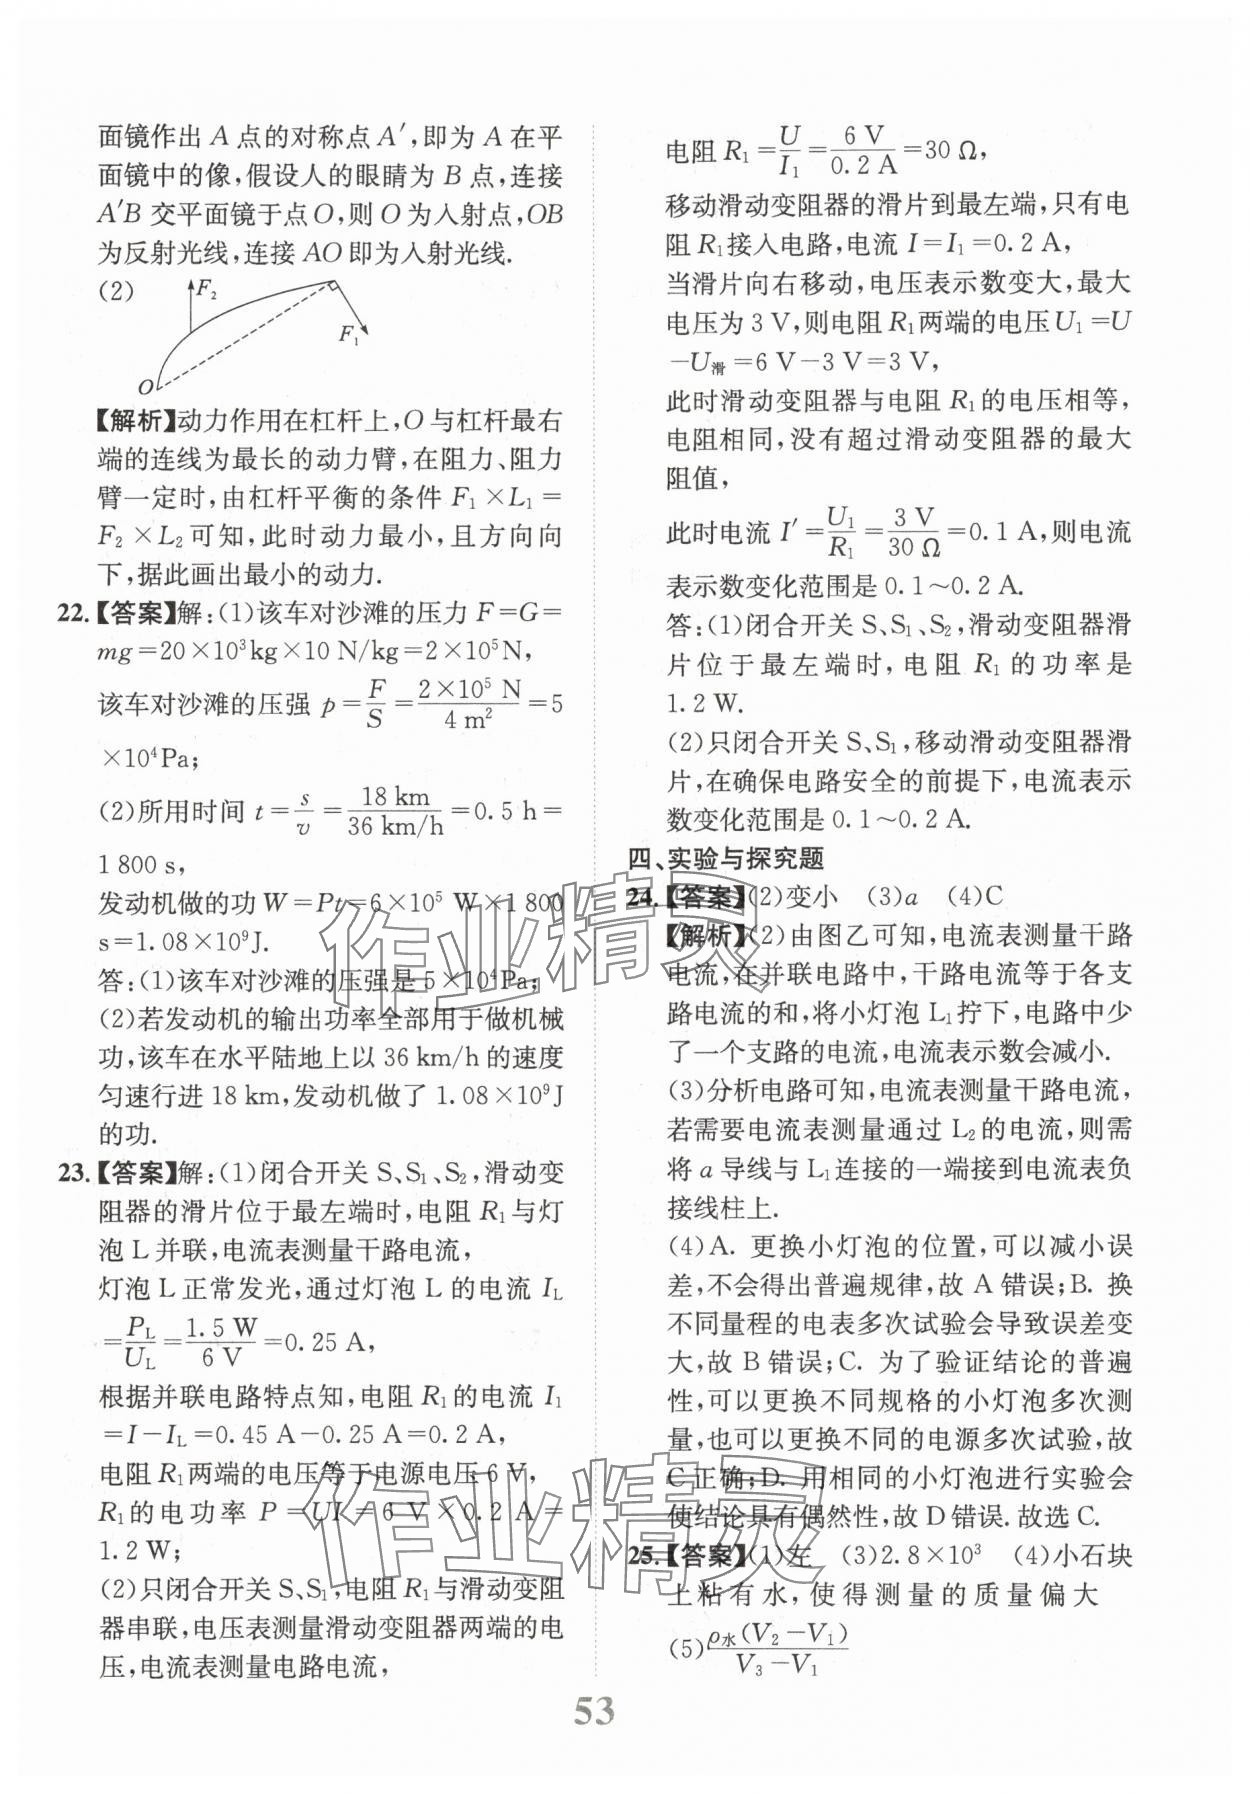 面镜作出 A 点的对称点 A′,即为 A 在平
面镜中的像,假设人的眼睛为 B 点,连接
A′B 交平面镜于点 O,则 O 为入射点,OB
为反射光线,连接 AO 即为入射光线.
(2)
F₂
F₁
O
【解析】动力作用在杠杆上,O 与杠杆最右
端的连线为最长的动力臂,在阻力、阻力
臂一定时,由杠杆平衡的条件 F₁×L₁=
F₂×L₂可知,此时动力最小,且方向向
下,据此画出最小的动力.
22.【答案】解:(1)该车对沙滩的压力 F=G=
mg=20×10³kg×10 N/kg=2×10⁵N,
该车对沙滩的压强 p=F/S=2×10⁵ N/4 m²=5
×10⁴Pa;
(2)所用时间 t=s/v=18 km/36 km/h=0.5 h=
1 800 s,
发动机做的功 W=Pt=6×10⁵ W×1 800
s=1.08×10⁹J.
答:(1)该车对沙滩的压强是 5×10⁴Pa;
(2)若发动机的输出功率全部用于做机械
功,该车在水平陆地上以 36 km/h 的速度
匀速行进 18 km,发动机做了 1.08×10⁹J
的功.
23.【答案】解:(1)闭合开关 S、S₁、S₂,滑动变
阻器的滑片位于最左端时,电阻 R₁与灯
泡 L 并联,电流表测量干路电流,
灯泡 L 正常发光,通过灯泡 L 的电流 I_L
=P_L/U_L=1.5 W/6 V=0.25 A,
根据并联电路特点知,电阻 R₁的电流 I₁
=I-I_L=0.45 A-0.25 A=0.2 A,
电阻 R₁两端的电压等于电源电压 6 V,
R₁的电功率 P=UI=6 V×0.2 A=
1.2 W;
(2)只闭合开关 S、S₁,电阻 R₁与滑动变阻
器串联,电压表测量滑动变阻器两端的电
压,电流表测量电路电流,
电阻 R₁=U/I₁=6 V/0.2 A=30 Ω,
移动滑动变阻器的滑片到最左端,只有电
阻 R₁接入电路,电流 I=I₁=0.2 A,
当滑片向右移动,电压表示数变大,最大
电压为 3 V,则电阻 R₁两端的电压 U₁=U
-U滑=6 V-3 V=3 V,
此时滑动变阻器与电阻 R₁的电压相等,
电阻相同,没有超过滑动变阻器的最大
阻值,
此时电流 I′=U₁/R₁=3 V/30 Ω=0.1 A,则电流
表示数变化范围是 0.1~0.2 A.
答:(1)闭合开关 S、S₁、S₂,滑动变阻器滑
片位于最左端时,电阻 R₁ 的功率是
1.2 W.
(2)只闭合开关 S、S₁,移动滑动变阻器滑
片,在确保电路安全的前提下,电流表示
数变化范围是 0.1~0.2 A.
四、实验与探究题
24.【答案】(2)变小 (3)a (4)C
【解析】(2)由图乙可知,电流表测量干路
电流,在并联电路中,干路电流等于各支
路电流的和,将小灯泡 L₁拧下,电路中少
了一个支路的电流,电流表示数会减小.
(3)分析电路可知,电流表测量干路电流,
若需要电流表测量通过 L₂的电流,则需
将 a 导线与 L₁连接的一端接到电流表负
接线柱上.
(4)A. 更换小灯泡的位置,可以减小误
差,不会得出普遍规律,故 A 错误;B. 换
不同量程的电表多次试验会导致误差变
大,故 B 错误;C. 为了验证结论的普遍
性,可以更换不同规格的小灯泡多次测
量,也可以更换不同的电源多次试验,故
C 正确;D. 用相同的小灯泡进行实验会
使结论具有偶然性,故 D 错误.故选 C.
25.【答案】(1)左 (3)2.8×10³ (4)小石块
上粘有水,使得测量的质量偏大
(5)ρ水(V₂-V₁)/V₃-V₁
53
作业精灵
作业精灵